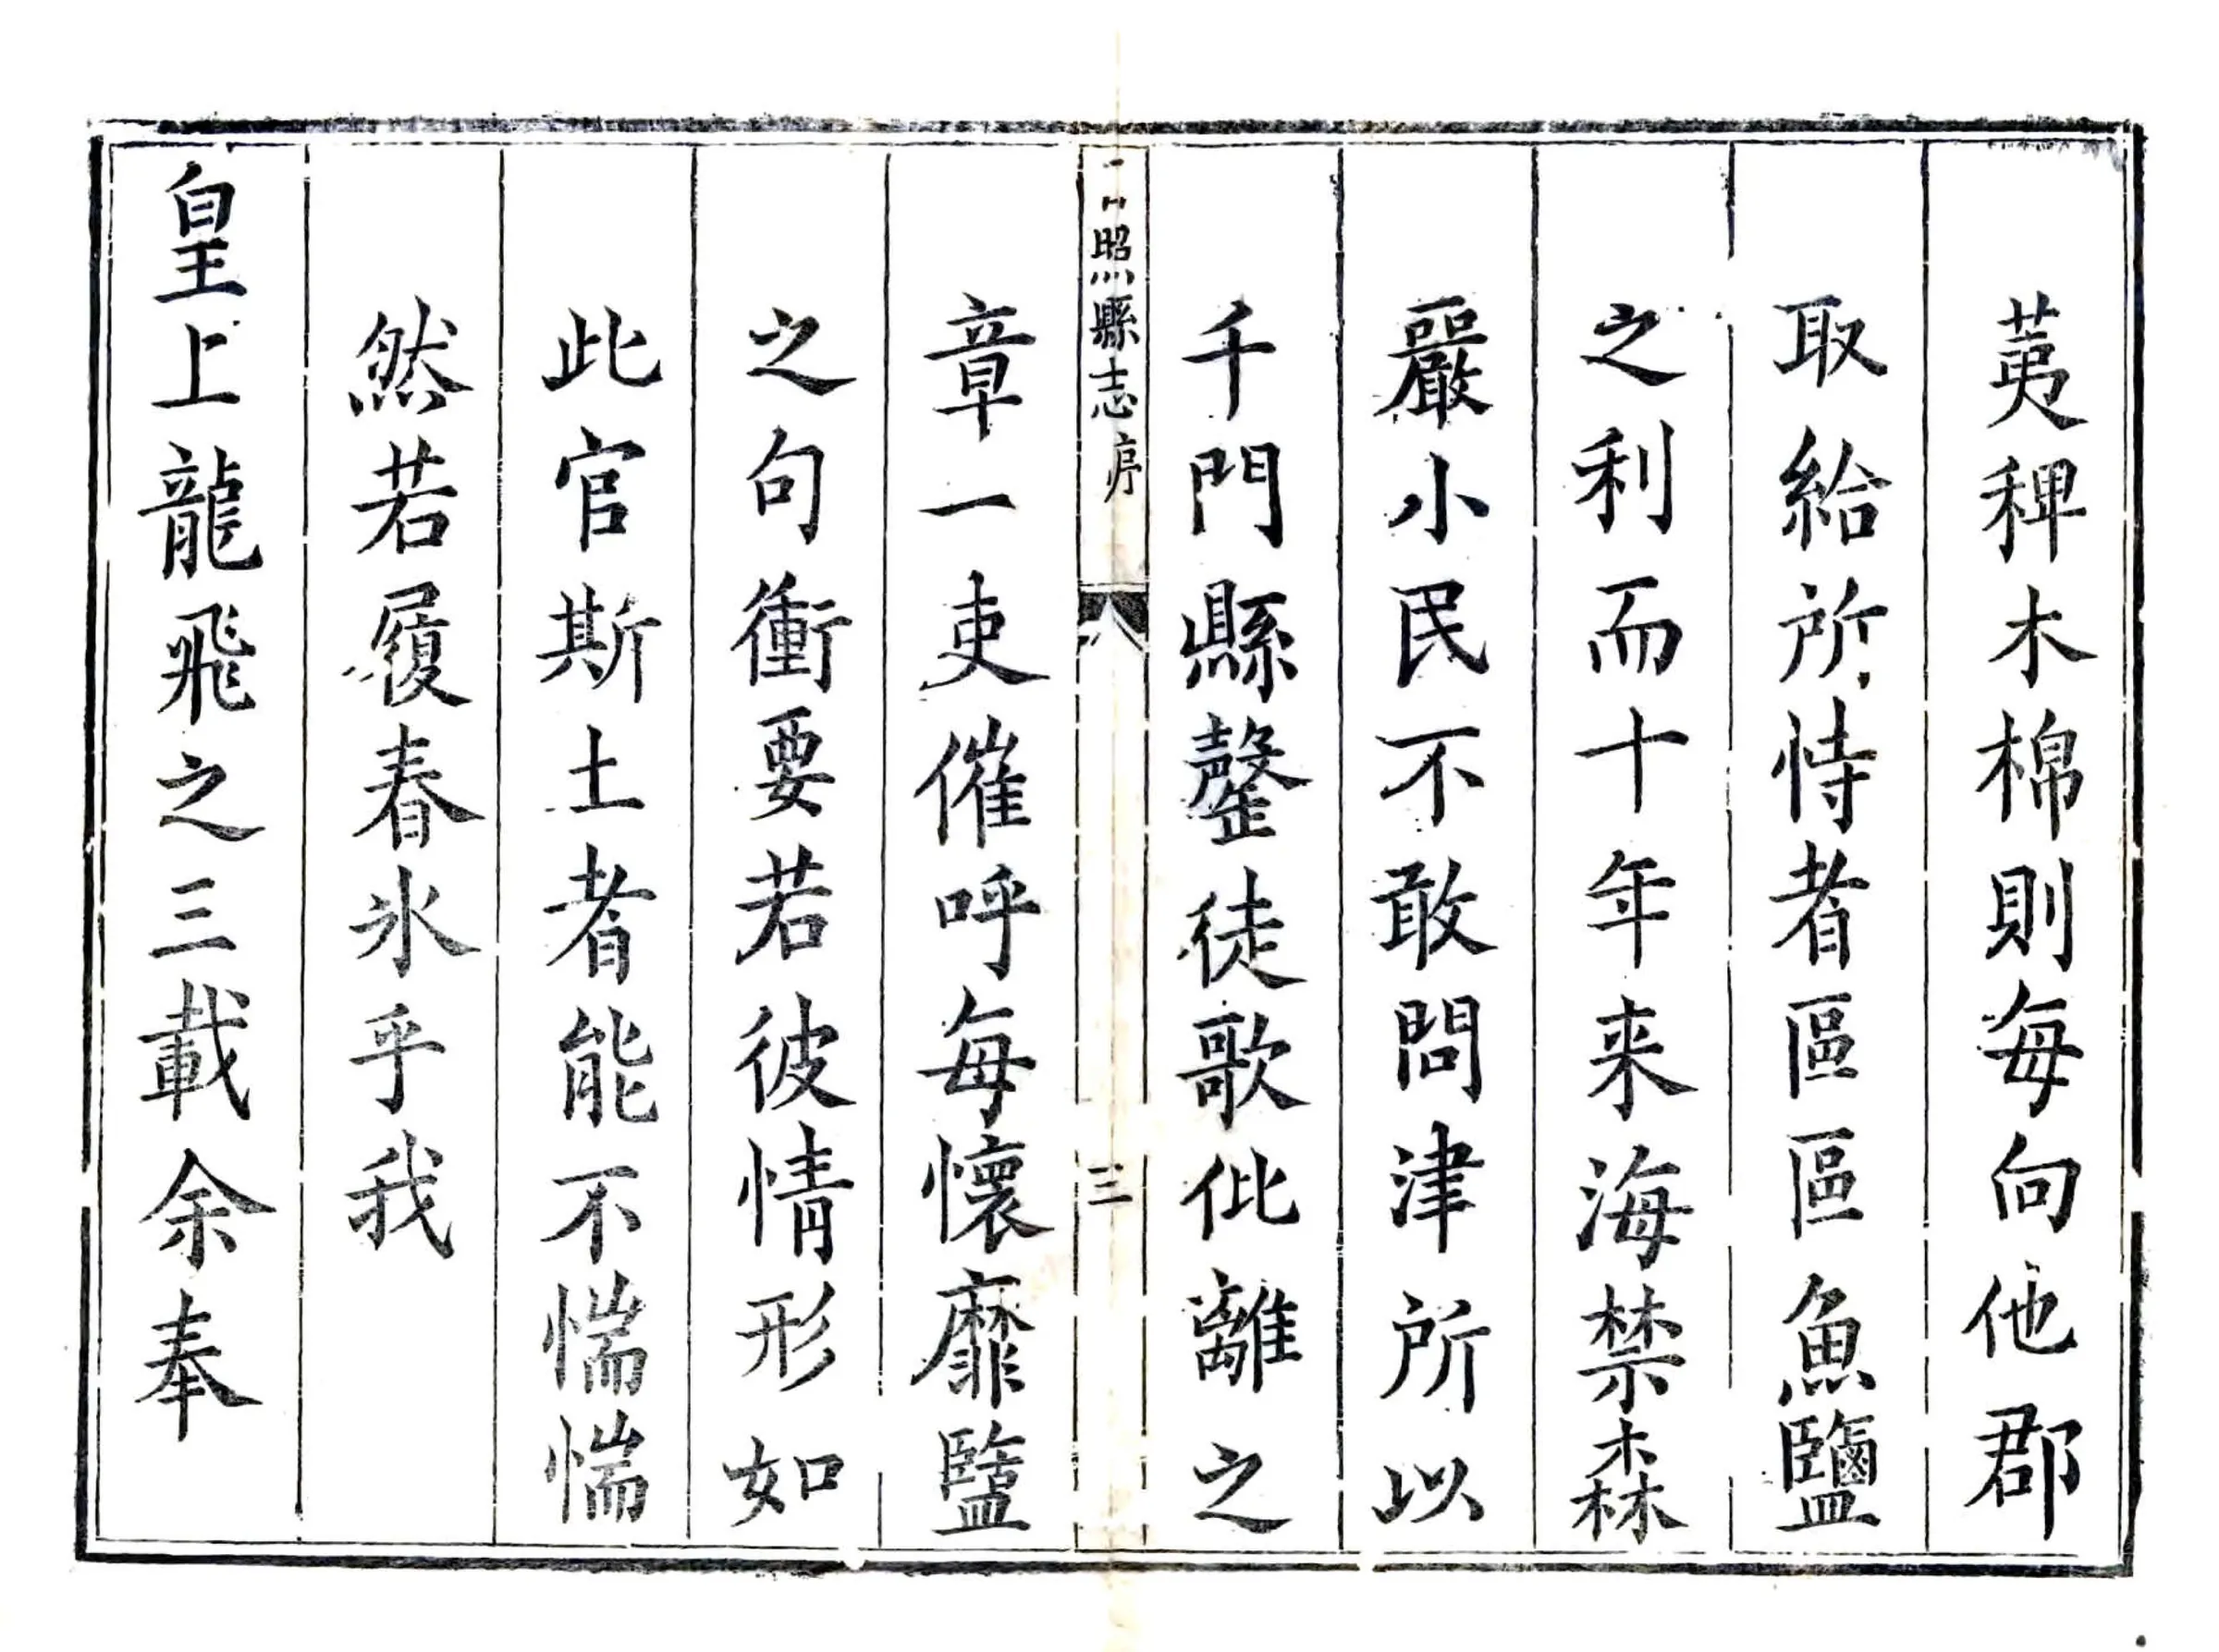 荑稗木棉則每向他郡
取給所恃者區區魚鹽
之利而十年来海禁森
嚴小民不敢問津所以
千門縣罄徒歌仳離之
日照縣志序
三
章一吏催呼每懷靡盬
之句衝要若彼情形如
此官斯土者能不惴惴
然若履春氷乎我
皇上龍飛之三載余奉